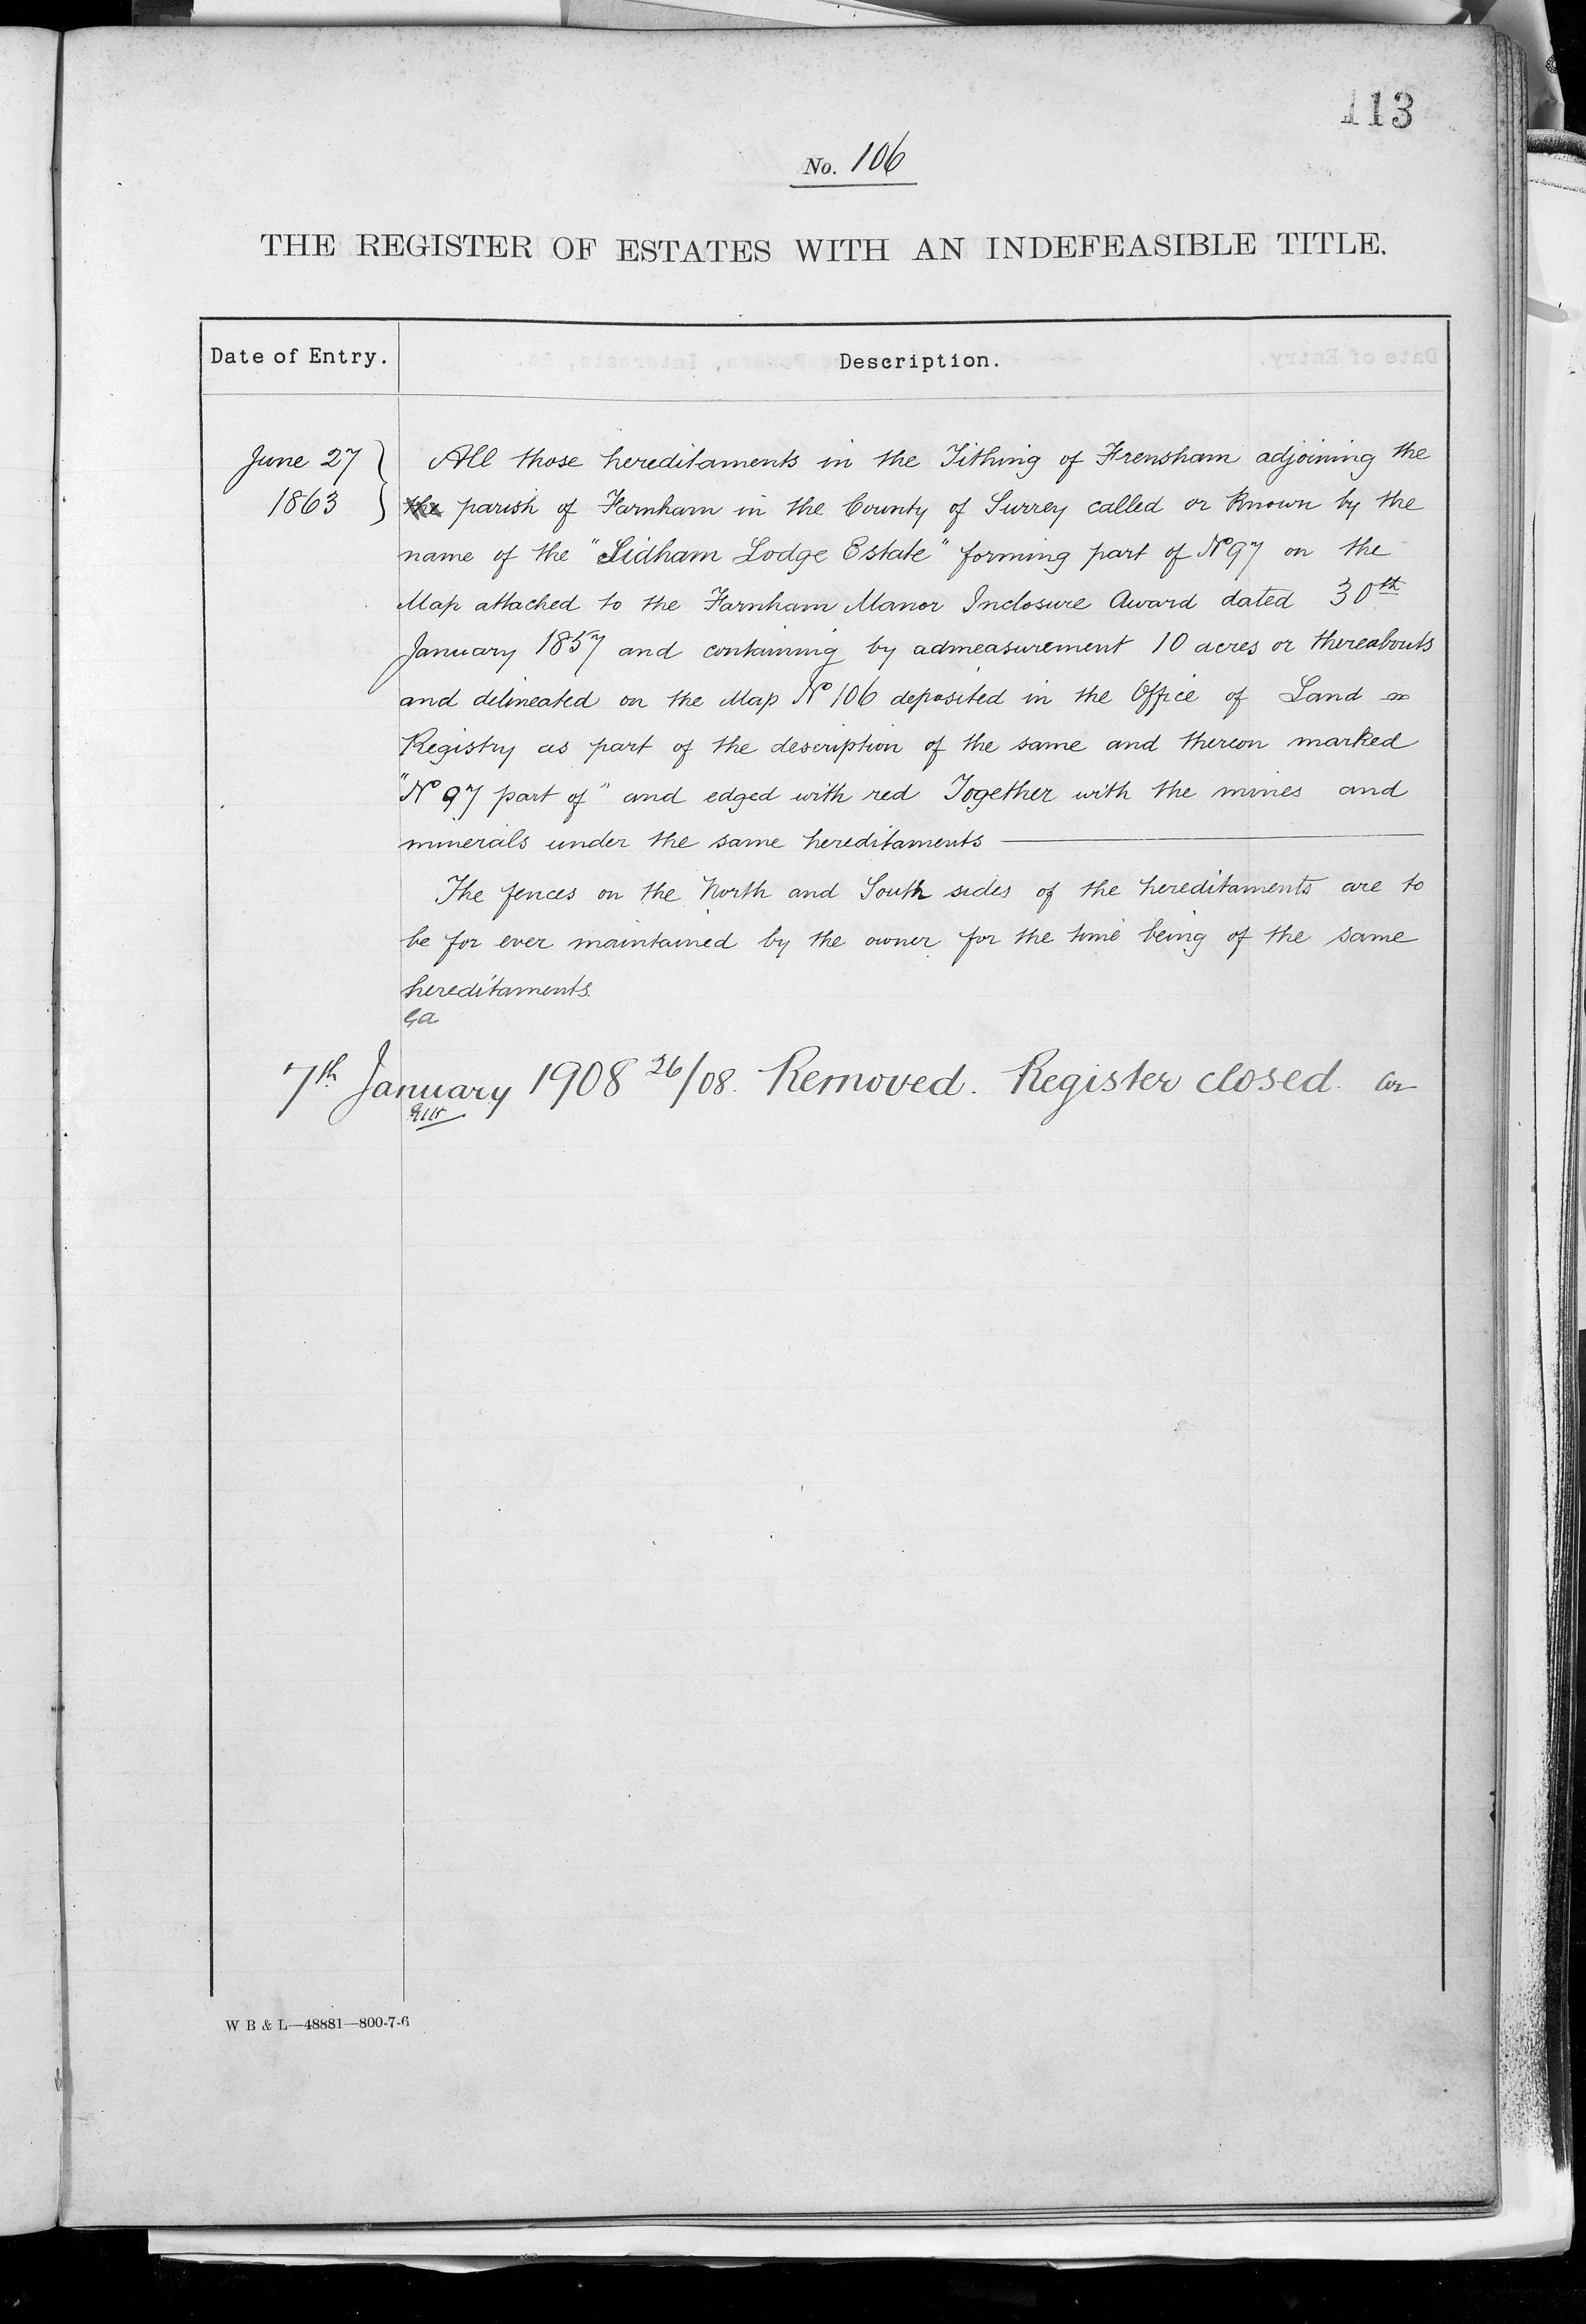 113
No. 106
THE REGISTER OF ESTATES WITH AN INDEFEASIBLE TITLE.
Date of Entry. Description.
June 27 All those hereditaments in the Tithing of Frensham adjoining the
1863 the parish of Farnham in the County of Surrey called or known by the
name of the "Sidham Lodge Estate" forming part of No 97 on the
Map attached to the Farnham Manor Inclosure Award dated 30th
January 1857 and containing by admeasurement 10 acres or thereabouts
and delineated on the Map No 106 deposited in the Office of Land
Registry as part of the description of the same and thereon marked
"No 97 part of" and edged with red Together with the mines and
minerals under the same hereditaments
The fences on the North and South sides of the hereditaments are to
be for ever maintained by the owner for the time being of the same
hereditaments.
7th January 1908 26/08. Removed. Register closed.
W B & L—48881—800-7-6